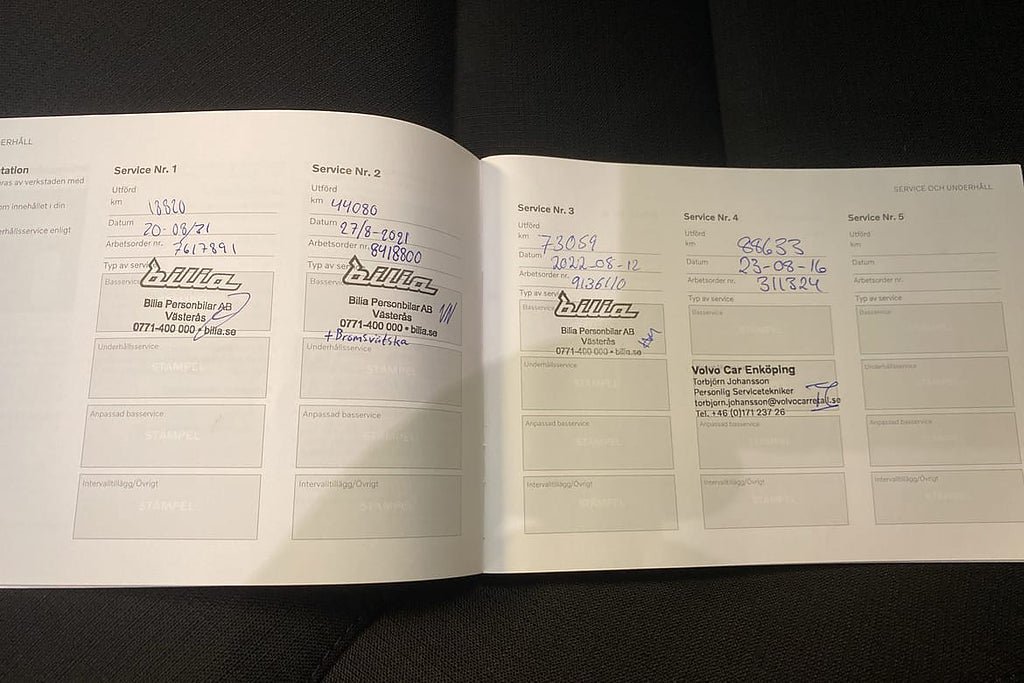 ERHÅLL
tation
ras av verkstaden med
om innehållet i din
rhållsservice enligt
Service Nr. 1
Utförd
km 18820
Datum 20-08/31
Arbetsorder nr. 7617891
Typ av
Basservice
bilia
Bilia Personbilar AB
Västerås
0771-400 000 • bilia.se
Underhållsservice
STÄMPEL
Anpassad basservice
STÄMPEL
Intervalltillägg/Övrigt
STÄMPEL
Service Nr. 2
Utförd
km 44080
Datum 27/8-2021
Arbetsorder nr. 8418800
Typ av
Basservice
bilia
Bilia Personbilar AB
Västerås
0771-400 000 • bilia.se
+Bromsvätska
Underhållsservice
STÄMPEL
Anpassad basservice
STÄMPEL
Intervalltillägg/Övrigt
STÄMPEL
SERVICE OCH UNDERHÅLL
Service Nr. 3
Utförd
km 73059
Datum 2022-08-12
Arbetsorder nr. 9136110
Typ av servi
Basservice
bilia
Bilia Personbilar AB
Västerås
0771-400 000 • bilia.se
Underhållsservice
STÄMPEL
Anpassad basservice
STÄMPEL
Intervalltillägg/Övrigt
STÄMPEL
Service Nr. 4
Utförd
km 88633
Datum 23-08-16
Arbetsorder nr. 311324
Typ av service
Basservice
STÄMPEL
Volvo Car Enköping
Torbjörn Johansson
Personlig Servicetekniker
torbjorn.johansson@volvocarretail.se
Tel. +46 (0)171 237 26
Anpassad basservice
STÄMPEL
Intervalltillägg/Övrigt
STÄMPEL
Service Nr. 5
Utförd
km
Datum
Arbetsorder nr.
Typ av service
Basservice
STÄMPEL
Underhållsservice
STÄMPEL
Anpassad basservice
STÄMPEL
Intervalltillägg/Övrigt
STÄMPEL